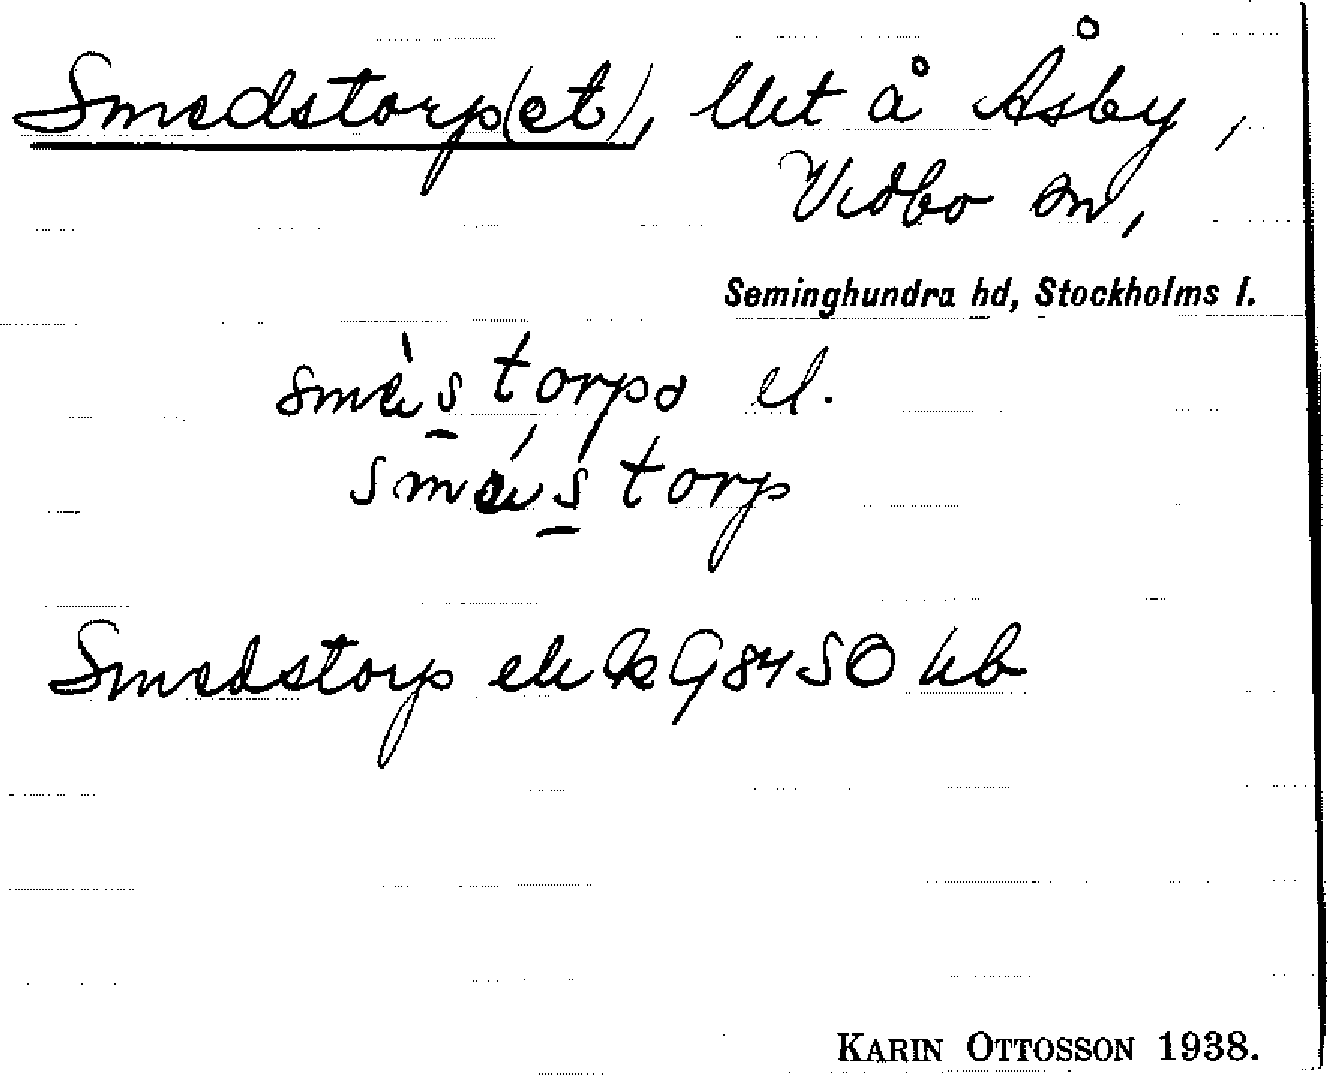 Smedstorp(et), lht å Åsby,
Vidbo sn,
Seminghundra hd, Stockholms l.
smès torpə el.
smés torp
Smedstorp ek 98450 hb
KARIN OTTOSSON 1938.